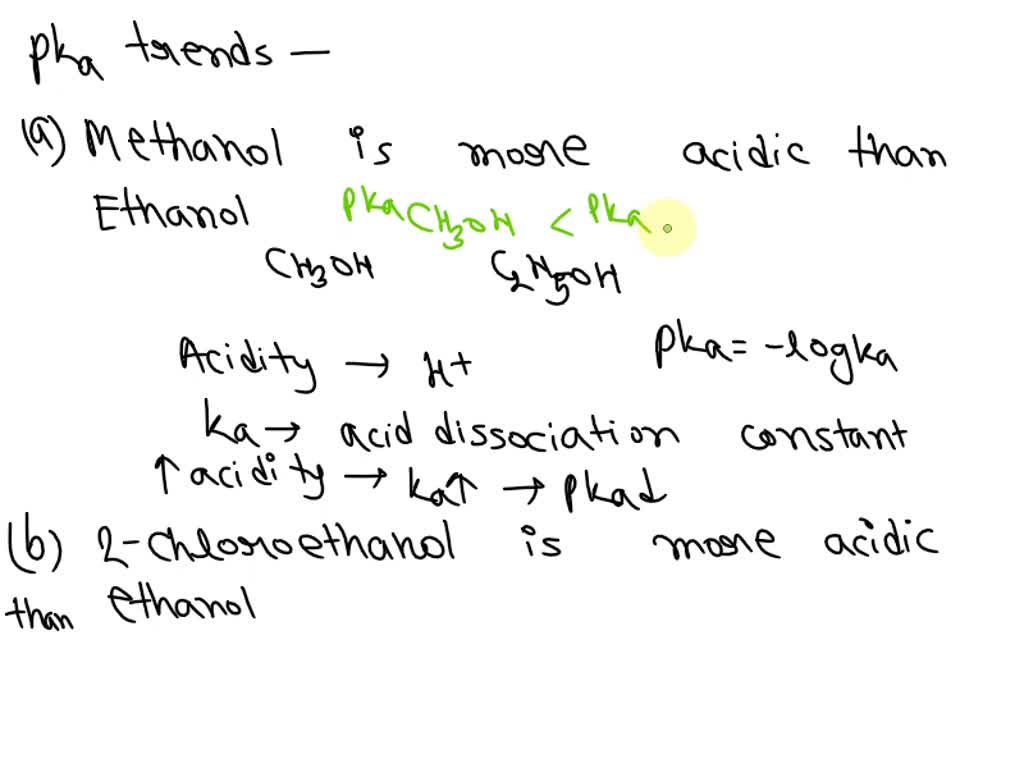 pka trends —
(a) Methanol is more acidic than
Ethanol pka CH3OH < pka
CH3OH C2H5OH
Acidity → H+ pka = -logka
ka → acid dissociation constant
↑ acidity → ka↑ → pka↓
(b) 2-chloroethanol is more acidic
than ethanol